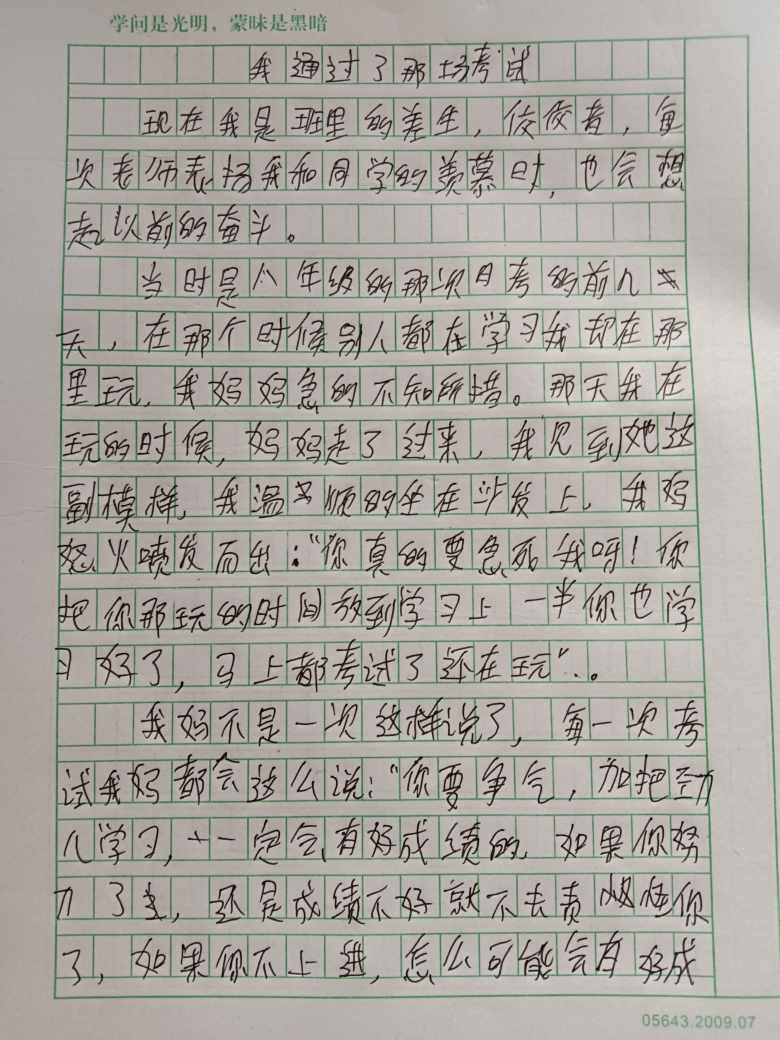 学问是光明，蒙昧是黑暗
我通过了那场考试
现在我是班里的差生，佼佼者，每
次老师表扬我和同学的羡慕时，也会想
起以前的奋斗。
当时是八年级的那次月考的前几
天，在那个时候别人都在学习我却在那
里玩，我妈妈急的不知所措。那天我在
玩的时候，妈妈走了过来，我见到她这
副模样，我温顺的坐在沙发上，我妈
怒火喷发而出："你真的要急死我呀！你
把你那玩的时间放到学习上一半你也学
习好了，马上都考试了还在玩"。
我妈不是一次这样说了，每一次考
试我妈都会这么说："你要争气，加把劲
儿学习，一定会有好成绩的，如果你努
力了，还是成绩不好就不去责怪你
了，如果你不上进，怎么可能会有好成
05643.2009.07